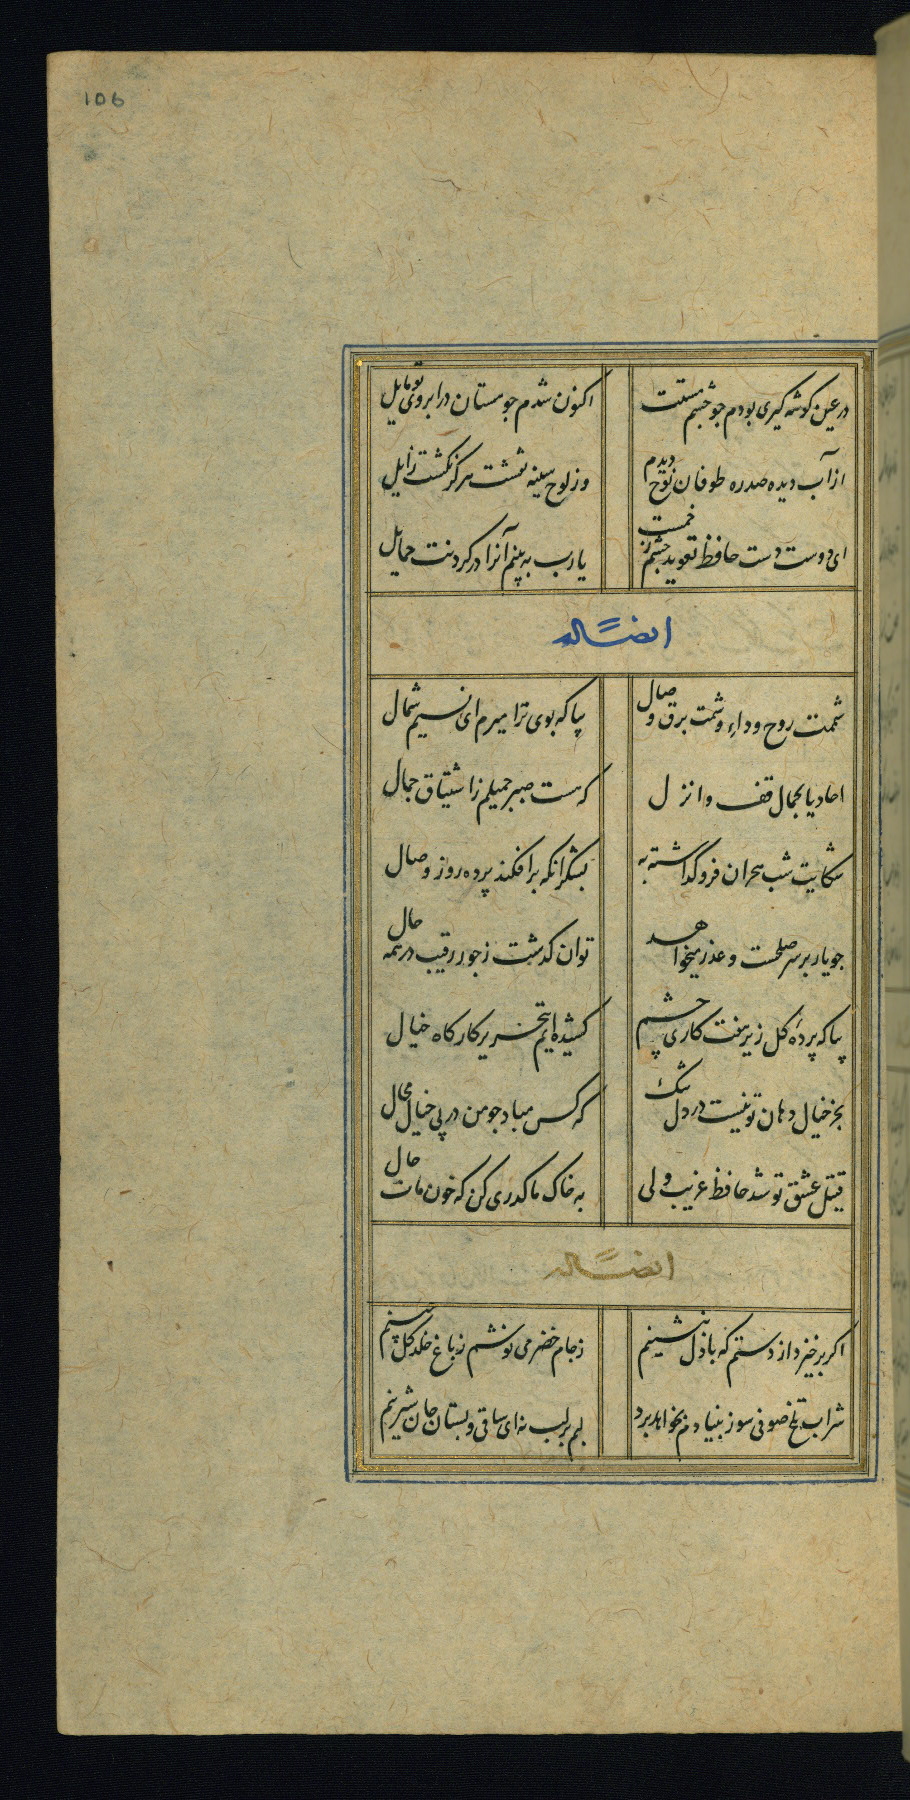 106
در عین کوشه کیری بودم جو چشم مستت
اکنون شدم جو مستان در ابروی تو مایل
از آب دیده صدره طوفان نوح دیدم
وز لوح سینه نقشت هرکز نکشت زایل
ای دوست دست حافظ تعوید چشم زخمست
یارب به بینم آنرا در کردنت حمایل
ایضاً له
شممت روح وداد و شمت برق وصال
بیا که بوی ترا میرم ای نسیم شمال
احادیا بجمال قف وانزل
که نیست صبر جمیلم ز اشتیاق جمال
شکایت شب هجران فرو گذاشته به
بشکر انکه برافکند پرده روز وصال
جو یار بر سر صلحست و عذر میخواهد
توان کذشت ز جور رقیب در همه حال
بیا که پردهٔ کل ریز هفت کاری چشم
کشیده ایم بتحریر کارکاه خیال
بجز خیال دهان تو نیست در دل تنک
که کس مباد جو من در پی خیال محال
قتیل عشق تو شد حافظ غریب ولی
به خاک ما کذری کن که خون مات حلال
ایضاً له
اکر برخیزد از دستم که با دلدار بنشینم
ز جام خضر می نوشم ز باغ خلد کل چینم
شراب تلخ صوفی سوز بنیادم بخواهد برد
لبم بر لب نه ای ساقی و بستان جان شیرینم